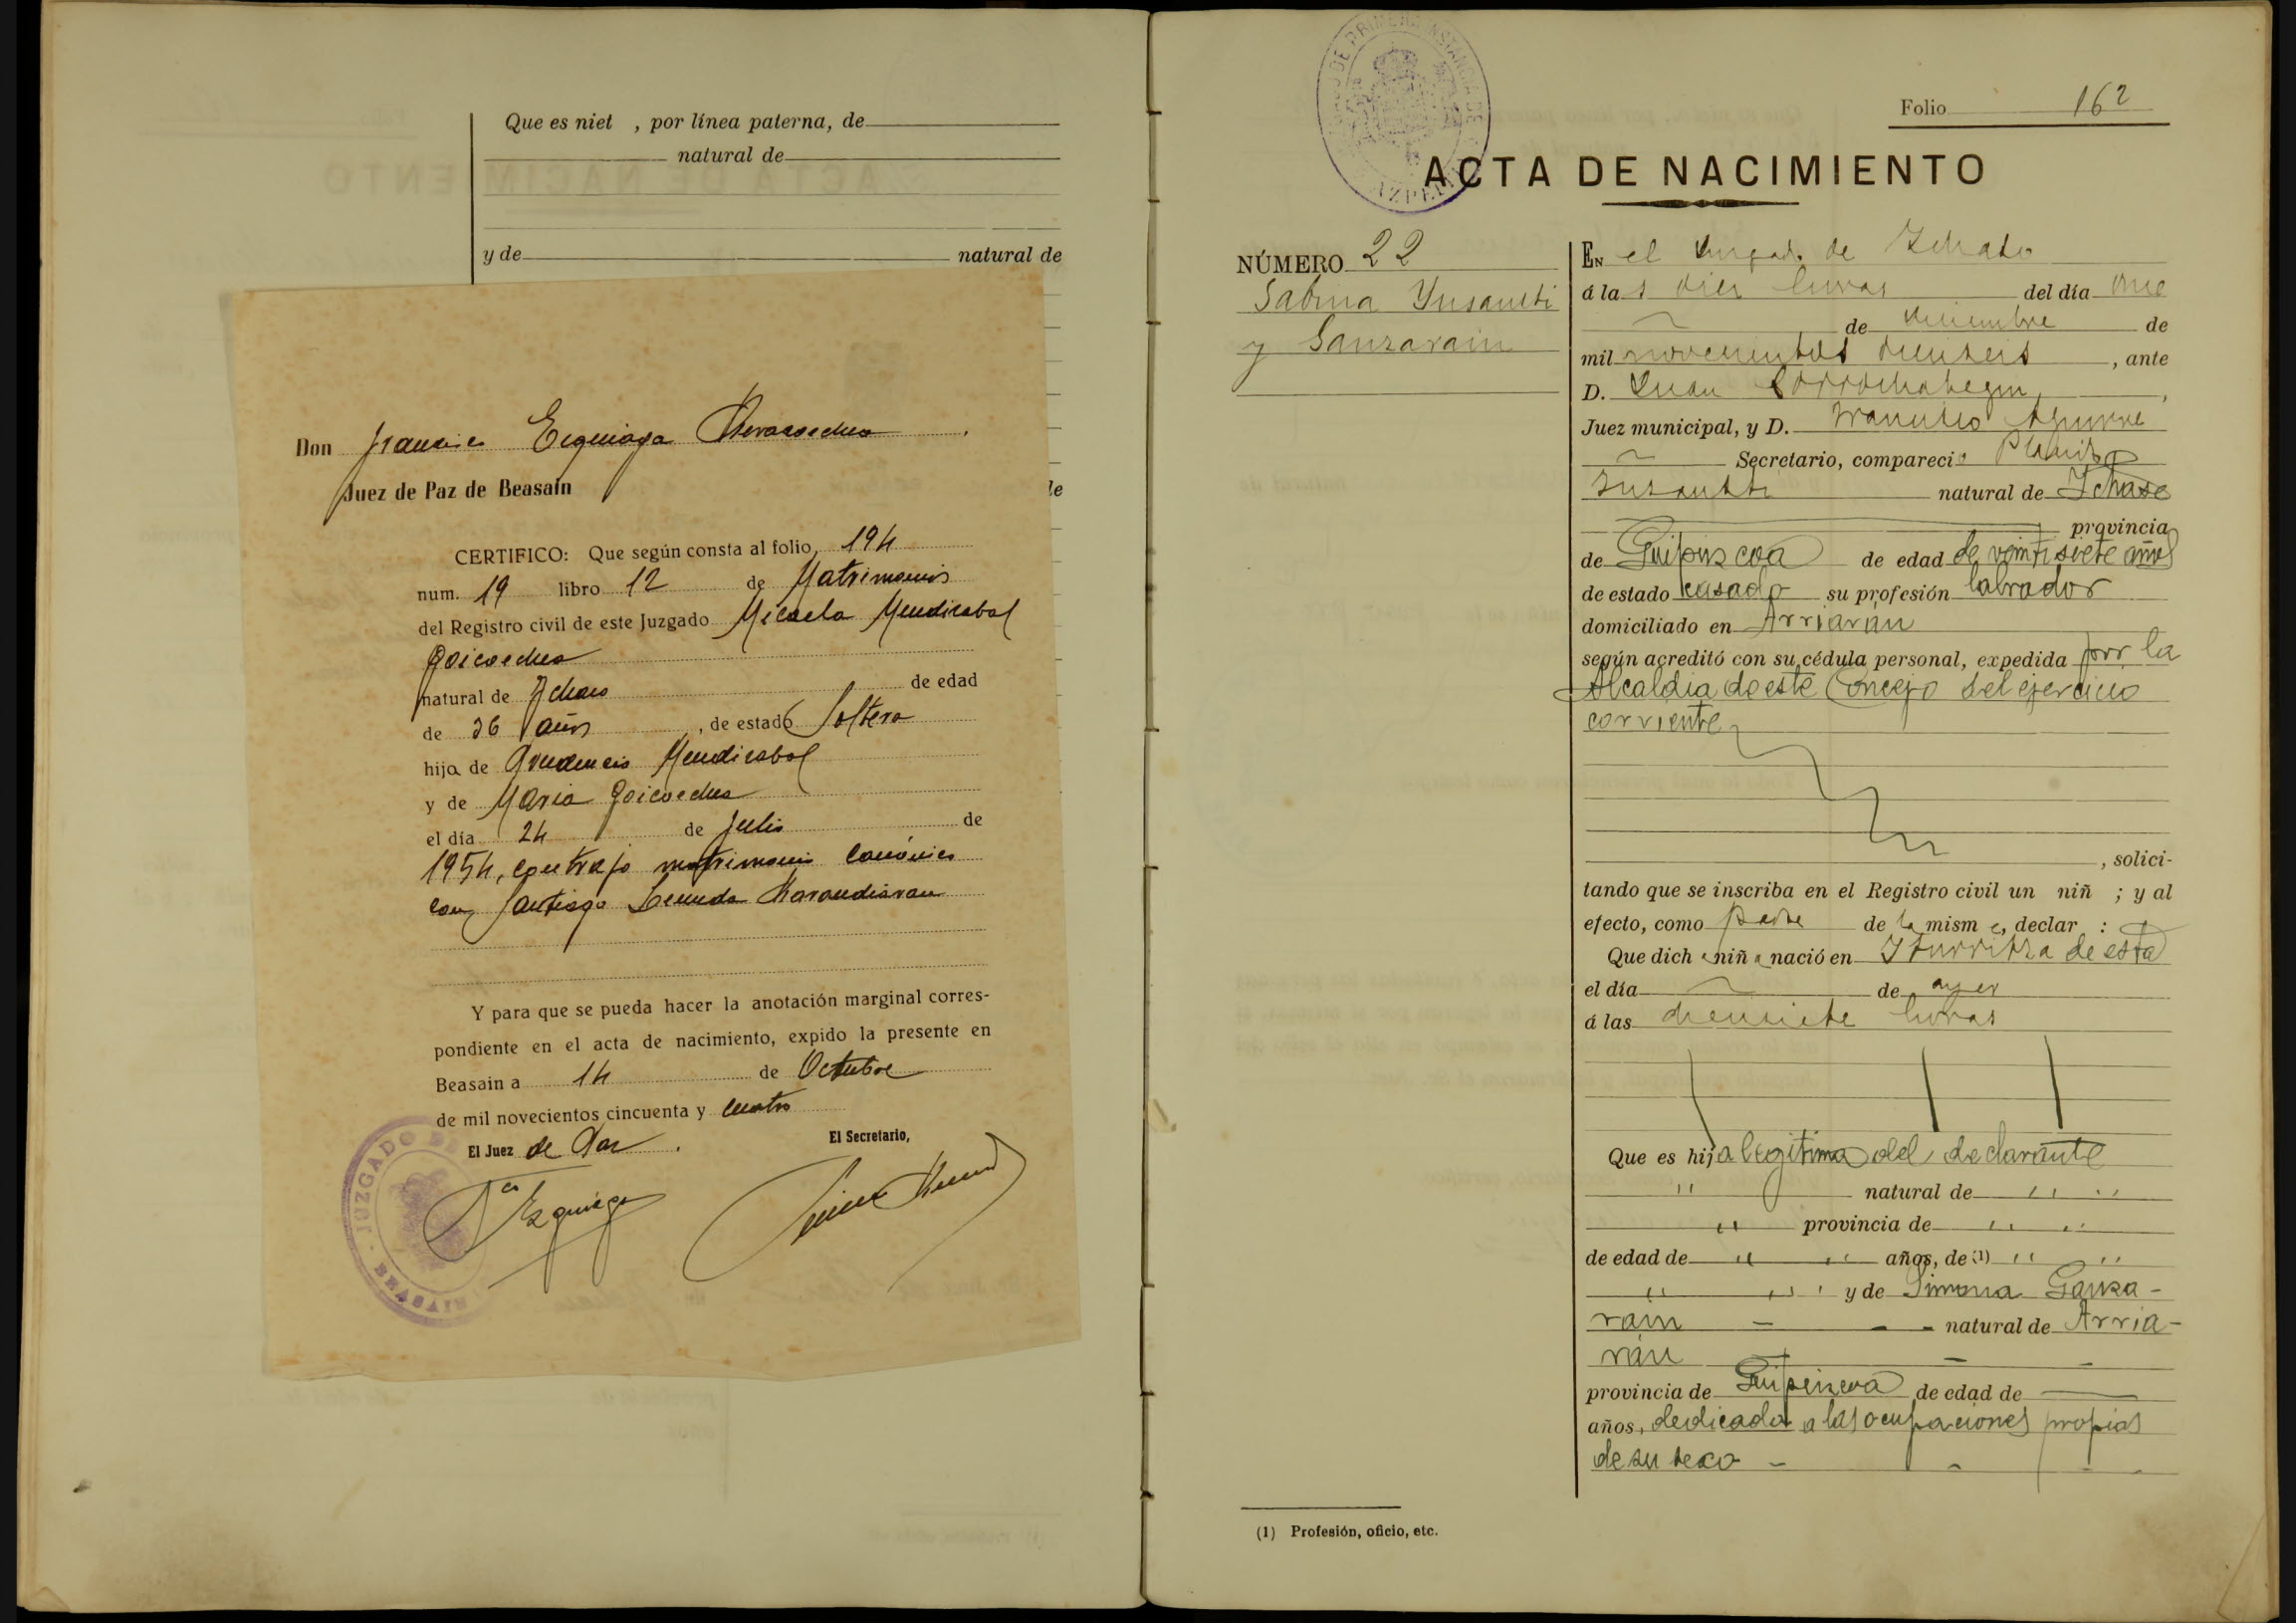 Que es niet , por línea paterna, de
natural de
y de natural de
le
Don Francisco Ezquiaga
Juez de Paz de Beasain
CERTIFICO: Que según consta al folio 194
num. 19 libro 12 de Matrimonios
del Registro civil de este Juzgado Micaela Mendizabal
Goicoechea
natural de Ichaso de edad
de 36 años , de estado Soltera
hija de Prudencio Mendizabal
y de Maria Goicoechea
el día 24 de Julio de
1954, contrajo matrimonio canónico
con Santiago
Y para que se pueda hacer la anotación marginal corres-
pondiente en el acta de nacimiento, expido la presente en
Beasain a 14 de Octubre
de mil novecientos cincuenta y cuatro
El Juez de Paz. El Secretario,
Fco Ezquiaga
JUZGADO DE BEASAIN
JUZGADO DE PRIMERA INSTANCIA DE AZPEITIA
Folio 162
ACTA DE NACIMIENTO
NÚMERO 22
Sabina Ynsausti
y Ganzarain
EN el Juzgado de Ichaso
á las diez horas del día once
de diciembre de
mil novecientos dieciseis , ante
D. Juan Sorrochategui,
Juez municipal, y D. Francisco Aguirre
Secretario, compareció Placido
Insausti natural de Ichaso
provincia
de Guipuzcoa de edad de veintisiete años
de estado casado su profesión labrador
domiciliado en Arriarán
según acreditó con su cédula personal, expedida por la
Alcaldia de este Concejo del ejercicio
corriente
, solici-
tando que se inscriba en el Registro civil un niñ ; y al
efecto, como padre de la mism a, declar :
Que dich a niñ a nació en Yturritza de esta
el día de ayer
á las diecisiete horas
Que es hija legitima del declarante
" natural de " "
" provincia de " "
de edad de " " años, de (1) " "
" " y de Simona Ganza-
rain - - natural de Arria-
rán - -
provincia de Guipuzcoa de edad de
años, dedicada a las ocupaciones propias
de su sexo - - -
(1) Profesión, oficio, etc.